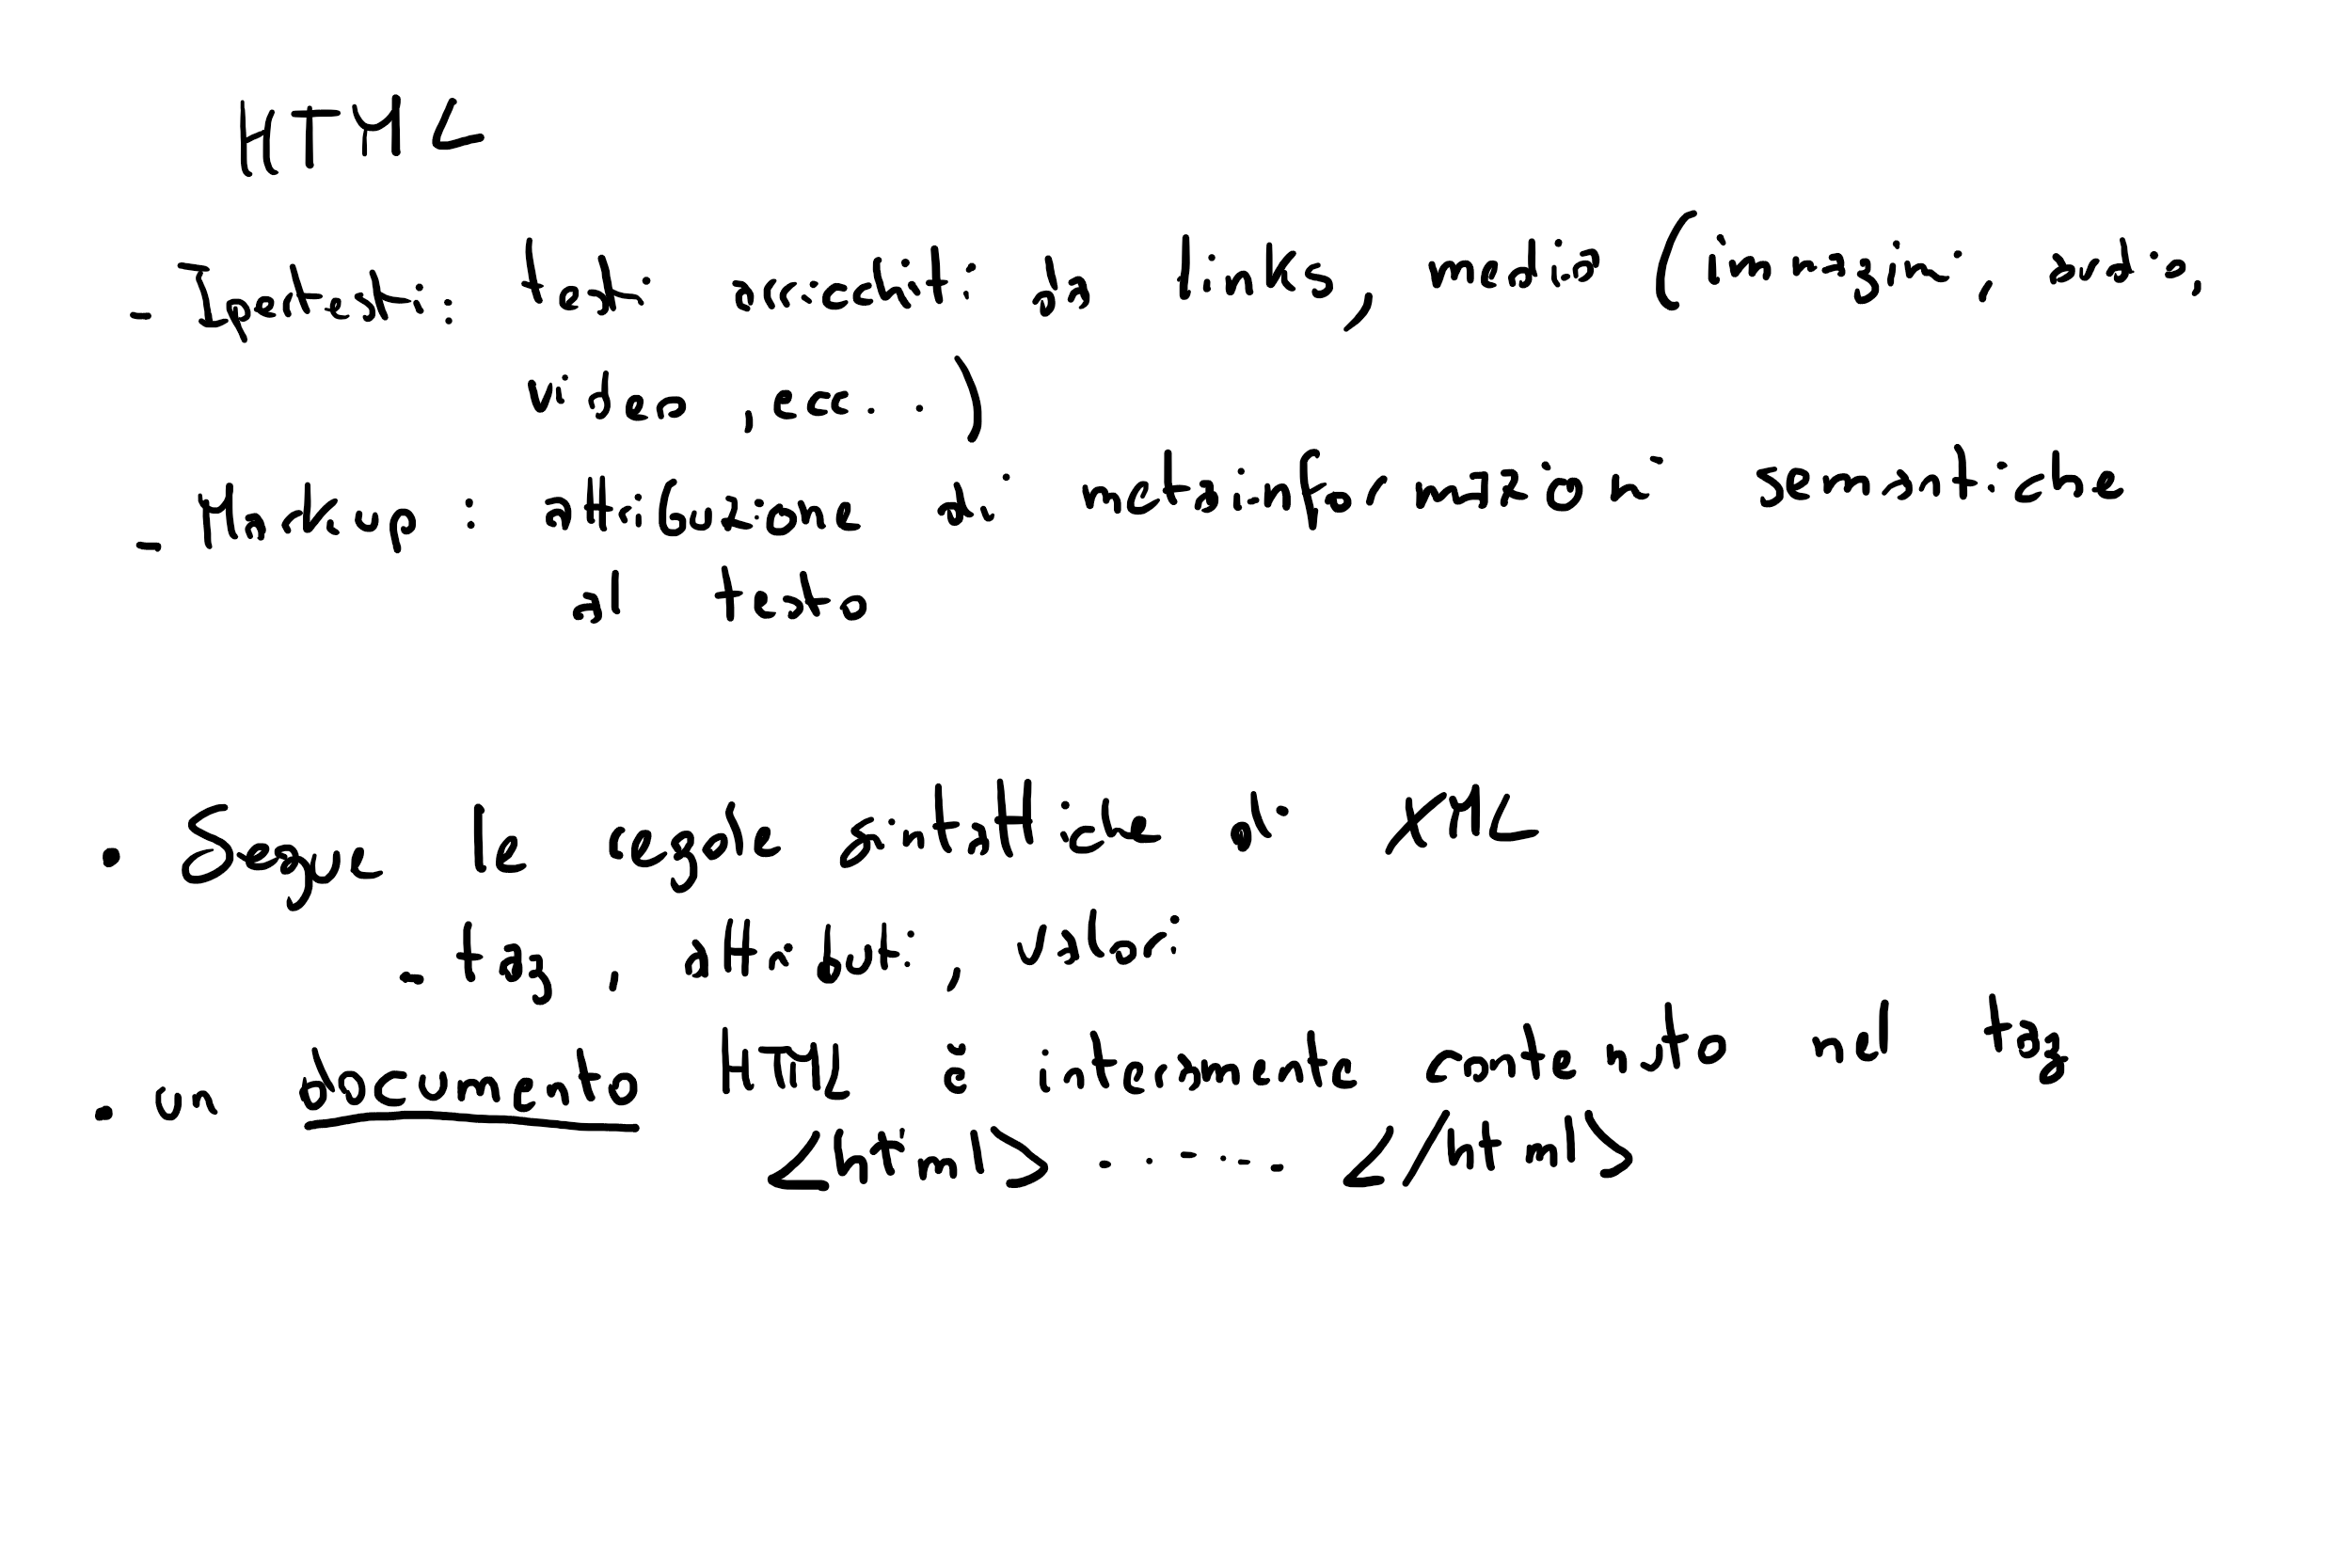 HTML
- Ipertesti: testi arricchiti da links, media (immagini, audio,
video, ecc..)
- Markup: attribuzione di metainformazioni semantiche
al testo
• Segue le regole sintattiche di XML
- tag, attributi, valori
• un documento HTML è interamente contenuto nel tag
<html> ...... </html>